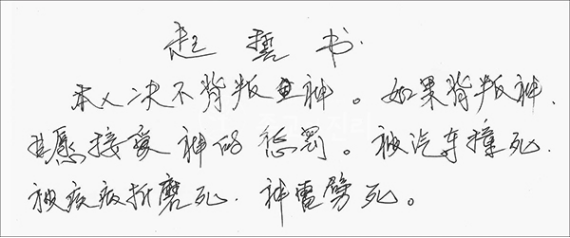 起誓书.
本人决不背叛神。如果背叛神.
甘愿接受神的惩罚。被汽车撞死.
被疾病折磨死.神雷劈死。